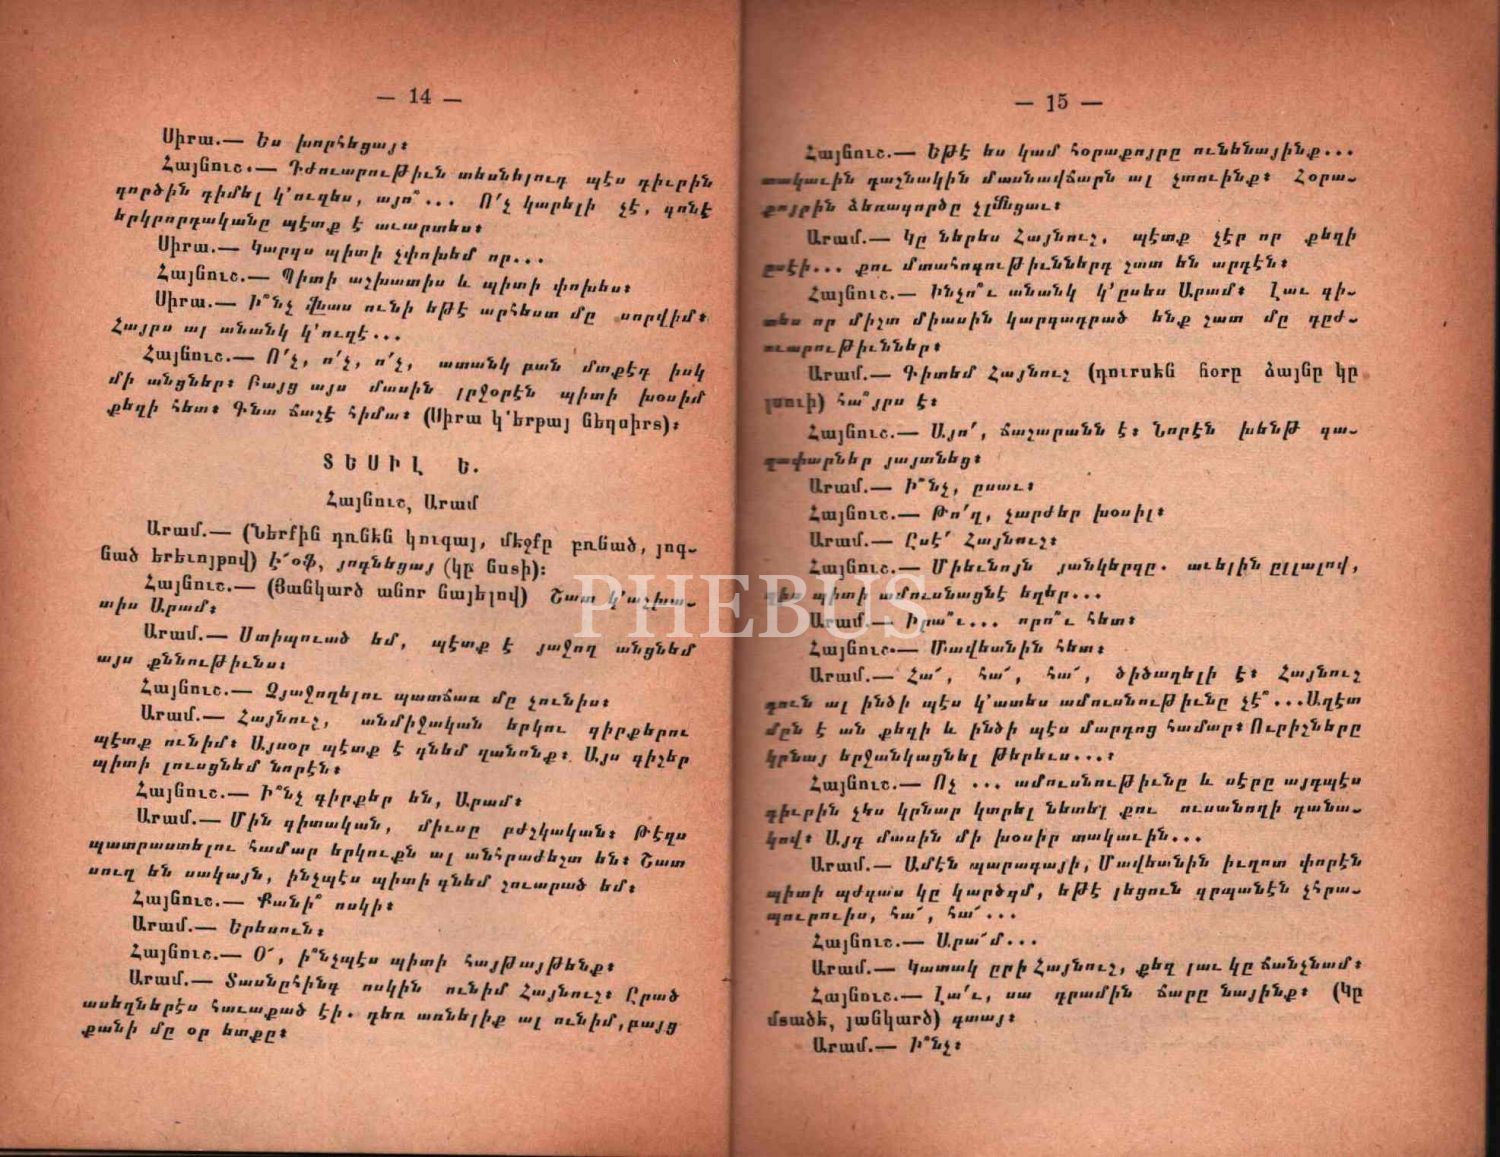 — 14 —
Սիրա.— Ես խորհեցայ։
Հայնուշ.— Դժուարութիւն տեսնելուդ պէս դիւրին
գործին դիմել կ՚ուզես, այո՞... Ո՛չ կարելի չէ, գոնէ
երկրորդականը պէտք է աւարտես։
Սիրա.— Կարգս պիտի չփոխեմ որ...
Հայնուշ.— Պիտի աշխատիս և պիտի փոխես։
Սիրա.— Ի՞նչ վնաս ունի եթէ արհեստ մը սորվիմ։
Հայրս ալ անանկ կ՚ուզէ...
Հայնուշ.— Ո՛չ, ո՛չ, ո՛չ, ատանկ բան մտքէդ իսկ
մի անցներ։ Բայց այս մասին լրջօրէն պիտի խօսիմ
քեզի հետ։ Գնա ճաշէ հիմա։ (Սիրա կ՚երթայ ներսիրս)։
ՏԵՍԻԼ Ե.
Հայնուշ, Արամ
Արամ.— (Ներքին դռնէն կուգայ, մէջքը բռնած, յոգ-
նած երեւոյթով) է՜օֆ, յոգնեցայ (կը նստի)։
Հայնուշ.— (Յանկարծ անոր նայելով) Շատ կ՚աշխա-
տիս Արամ։
Արամ.— Ստիպուած եմ, պէտք է յաջող անցնեմ
այս քննութիւնս։
Հայնուշ.— Չյաջողելու պատճառ մը չունիս։
Արամ.— Հայնուշ, անմիջական երկու գիրքերու
պէտք ունիմ։ Այսօր պէտք է գնեմ զանոնք։ Այս գիշեր
պիտի լուսցնեմ նորէն։
Հայնուշ.— Ի՞նչ գիրքեր են, Արամ։
Արամ.— Մին գիտական, միւսը բժշկական։ Թէզս
պատրաստելու համար երկուքն ալ անհրաժեշտ են։ Շատ
սուղ են սակայն, ինչպէս պիտի գնեմ շուարած եմ։
Հայնուշ.— Քանի՞ ոսկի։
Արամ.— Երեսուն։
Հայնուշ.— Օ՜, ի՞նչպէս պիտի հայթայթենք։
Արամ.— Տասնըհինգ ոսկին ունիմ Հայնուշ։ Ըրած
ասեղներէս հաւաքած էի. դեռ առնելիք ալ ունիմ, բայց
քանի մը օր ետքը։
— 15 —
Հայնուշ.— Եթէ ես կամ հօրաքոյրը ունենայինք...
տակաւին դաշնակին մասնավճարն ալ չտուինք։ Հօրա-
քոյրին ձեռագործը չլմնցաւ։
Արամ.— Կը ներես Հայնուշ, պէտք չէր որ քեզի
ըսէի... քու մտահոգութիւններդ շատ են արդէն։
Հայնուշ.— Ինչո՞ւ անանկ կ՚ըսես Արամ։ Լաւ գի-
տես որ միշտ միասին կարգադրած ենք շատ մը դըժ-
ուարութիւններ։
Արամ.— Գիտեմ Հայնուշ (դուրսէն հօրը ձայնը կը
լսուի) հա՞յրս է։
Հայնուշ.— Այո՛, ճաշարանն է։ Նորէն խենթ գա-
ղափարներ յայտնեց։
Արամ.— Ի՞նչ, ըսաւ։
Հայնուշ.— Թո՛ղ, չարժեր խօսիլ։
Արամ.— Ըսէ՛ Հայնուշ։
Հայնուշ.— Միեւնոյն յանկերգը. աւելին ըլլալով,
զիս պիտի ամուսնացնէ եղեր...
Արամ.— Իրա՞ւ... որո՞ւ հետ։
Հայնուշ.— Մավեանին հետ։
Արամ.— Հա՜, հա՜, հա՜, ծիծաղելի է։ Հայնուշ
դուն ալ ինծի պէս կ՚ատես ամուսնութիւնը չէ՞...Աղէտ
մըն է ան քեզի և ինծի պէս մարդոց համար։ Ուրիշները
կրնայ երջանկացնել թերեւս...։
Հայնուշ.— Ոչ ... ամուսնութիւնը և սէրը այդպէս
դիւրին չես կրնար կտրել նետել քու ուսանողի դանա-
կով։ Այդ մասին մի խօսիր տակաւին...
Արամ.— Ամէն պարագայի, Մավեանին իւղոտ փորէն
պիտի պժգաս կը կարծեմ, եթէ լեցուն գրպանէն չհրա-
պուրուիս, հա՜, հա՜...
Հայնուշ.— Արա՜մ...
Արամ.— Կատակ ըրի Հայնուշ, քեզ լաւ կը ճանչնամ։
Հայնուշ.— Լա՛ւ, սա դրամին ճարը նայինք։ (Կը
մտածէ, յանկարծ) գտայ։
Արամ.— Ի՞նչ։
PHEBUS